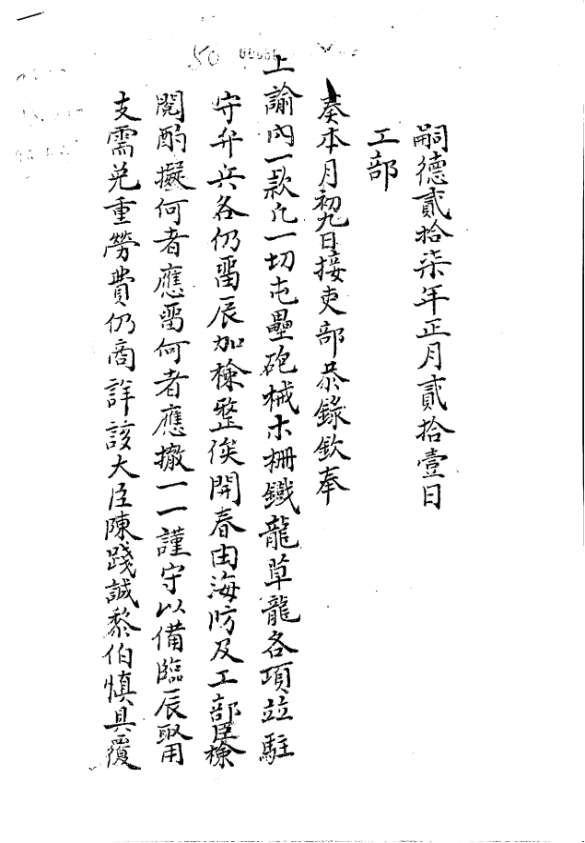 嗣德貳拾柒年正月貳拾壹日
工部
奏本月初九日接吏部恭錄欽奉
上諭內一款凡一切屯壘砲械木柵鐵龍草龍各項竝駐
守弁兵各仍畱辰加檢整俟開春由海防及工部臣檢
閱酌擬何者應畱何者應撤一一謹守以備臨辰取用
支需免重勞費仍商詳該大臣陳踐誠黎伯慎具覆
50